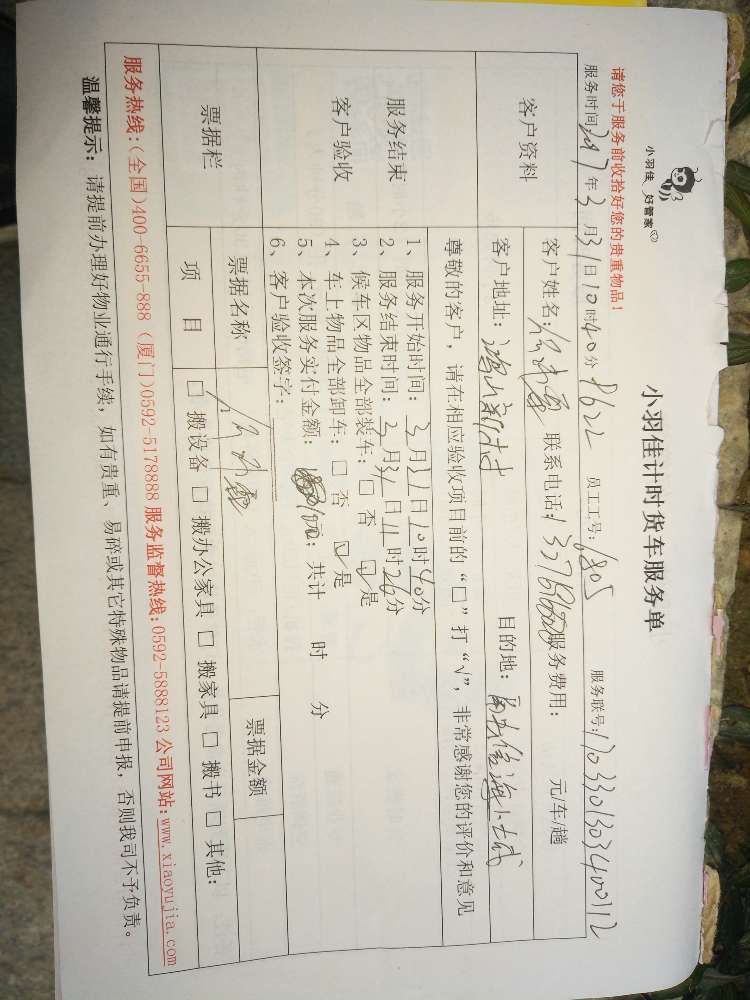 小羽佳 好管家
小羽佳计时货车服务单
请您于服务前收拾好您的贵重物品！
服务时间2017年3月31日10时40分 8622 员工工号：6805 服务联号：1703301303400112
客户资料
客户姓名： 联系电话： 服务费用： 元/车/趟
客户地址： 目的地：
服务结束
客户验收
尊敬的客户，请在相应验收项目前的“□”打“√”，非常感谢您的评价和意见
1、服务开始时间：3月31日10时40分
2、服务结束时间：3月31日11时26分
3、候车区物品全部装车：□否 ☑是
4、车上物品全部卸车：□否 ☑是
5、本次服务实付金额： 共计 时 分
6、客户验收签字：
票据栏
票据名称 票据金额
项 目 □搬设备 □搬办公家具 □搬家具 □搬书 □其他：
服务热线:(全国)400-6655-888 (厦门)0592-5178888 服务监督热线:0592-5888123 公司网站:www.xiaoyujia.com
温馨提示：请提前办理好物业通行手续，如有贵重、易碎或其它特殊物品请提前申报，否则我司不予负责。